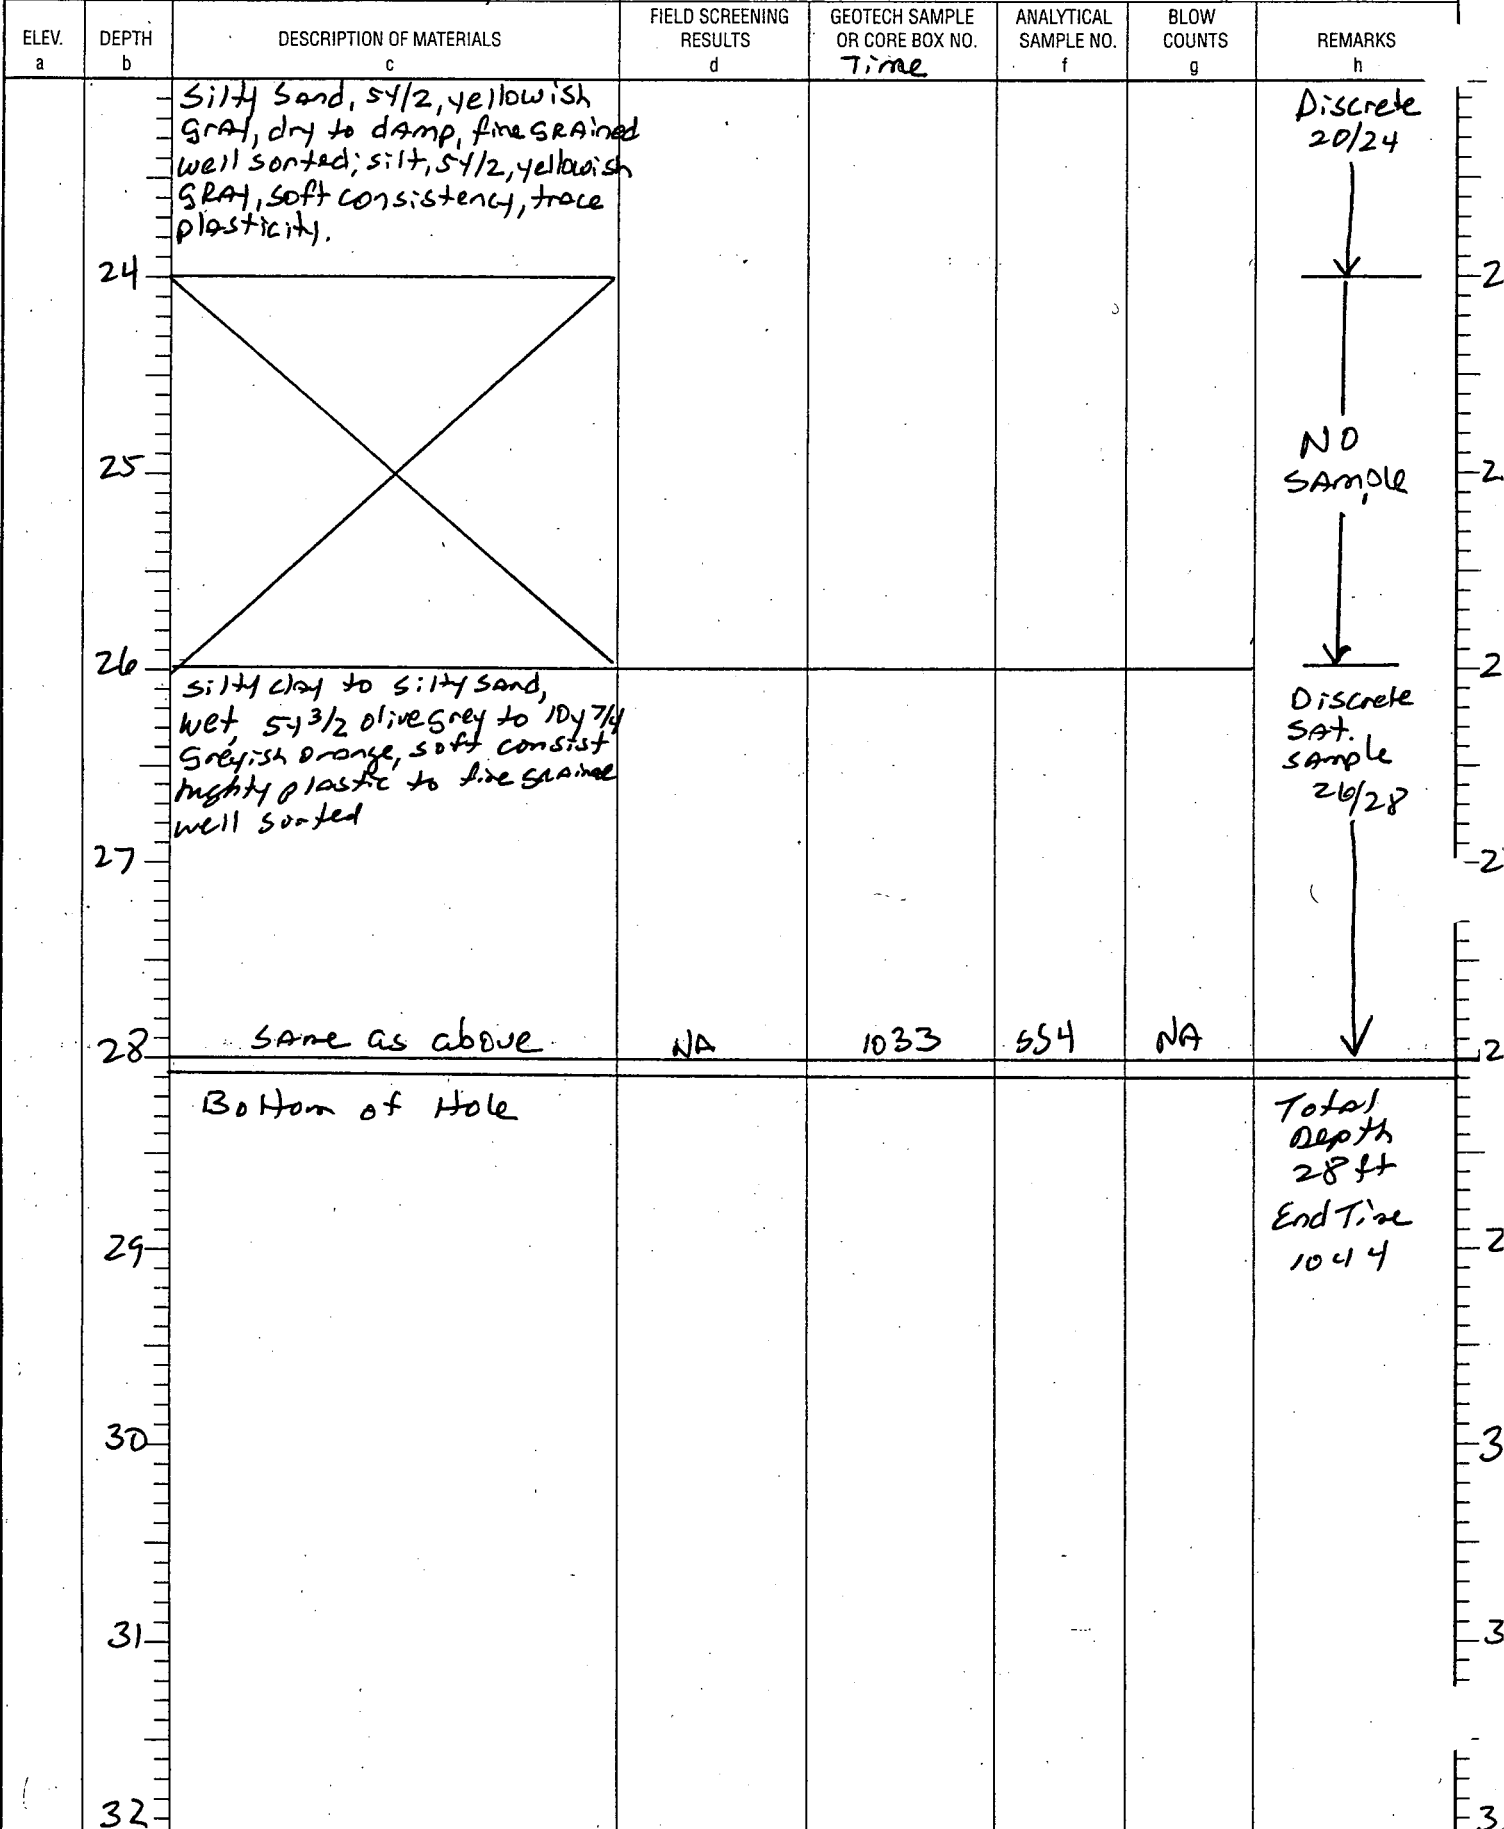 ELEV. DEPTH DESCRIPTION OF MATERIALS FIELD SCREENING RESULTS GEOTECH SAMPLE OR CORE BOX NO. ANALYTICAL SAMPLE NO. BLOW COUNTS REMARKS
a b c d Time f g h
Silty Sand, 5Y/2, yellowish
gray, dry to damp, fine grained
well sorted; silt, 5Y/2, yellowish
gray, soft consistency, trace
plasticity.
Discrete
20/24
24
2
25
NO
Sample
2
26
2
silty clay to silty sand,
wet, 5Y 3/2 olive grey to 10Y 7/4
Greyish orange, soft consist
highly plastic to fine grained
well sorted
Discrete
Sat.
Sample
26/28
27
2
28 Same as above NA 1033 SS4 NA
2
Bottom of Hole
Total
Depth
28 ft
End Time
1044
29
2
30
3
31
3
32
3